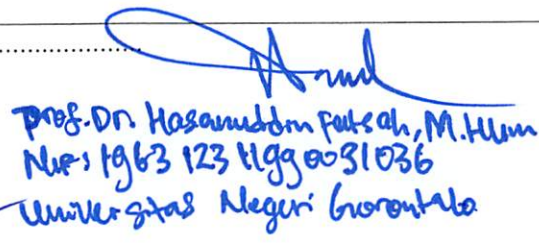 Prof. Dr. Hasanuddin Fatsah, M.Hum
Nip: 196312311990031036
Universitas Negeri Gorontalo